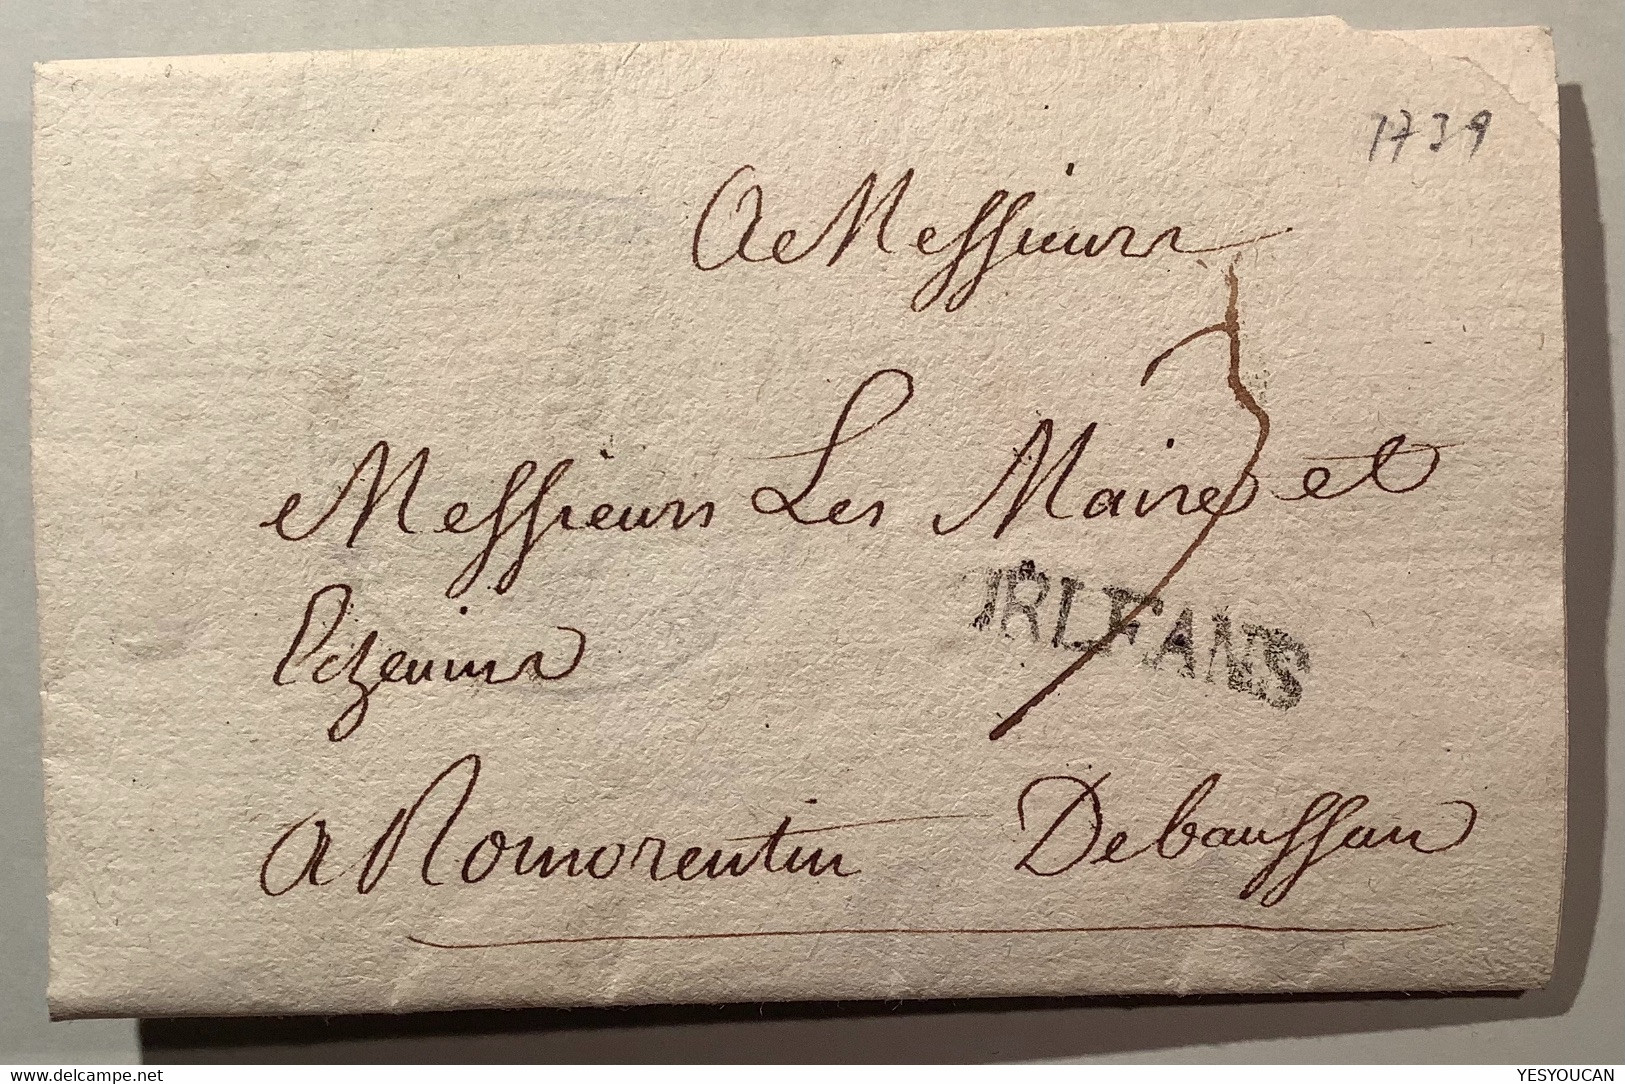 1739
A Messieurs
Messieurs Les Maire et
Echevins
ORLEANS
A Romorentin Debaussan
www.delcampe.net
YESYOUCAN